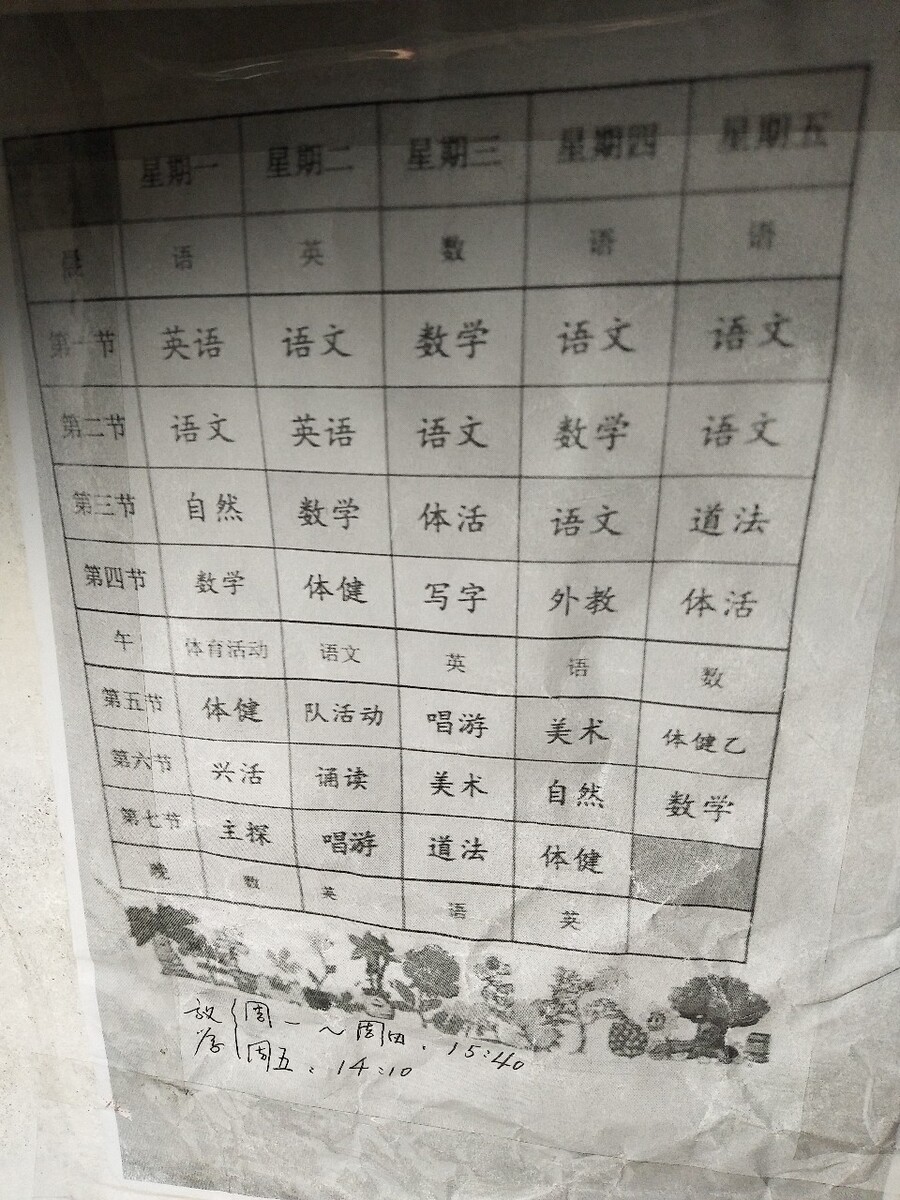 星期一 星期二 星期三 星期四 星期五
晨 语 英 数 语 语
第一节 英语 语文 数学 语文 语文
第二节 语文 英语 语文 数学 语文
第三节 自然 数学 体活 语文 道法
第四节 数学 体健 写字 外教 体活
午 体育活动 语文 英 语 数
第五节 体健 队活动 唱游 美术 体健乙
第六节 兴活 诵读 美术 自然 数学
第七节 主探 唱游 道法 体健
晚 数 英 语 英
放学 周一~周四:15:40
周五:14:10